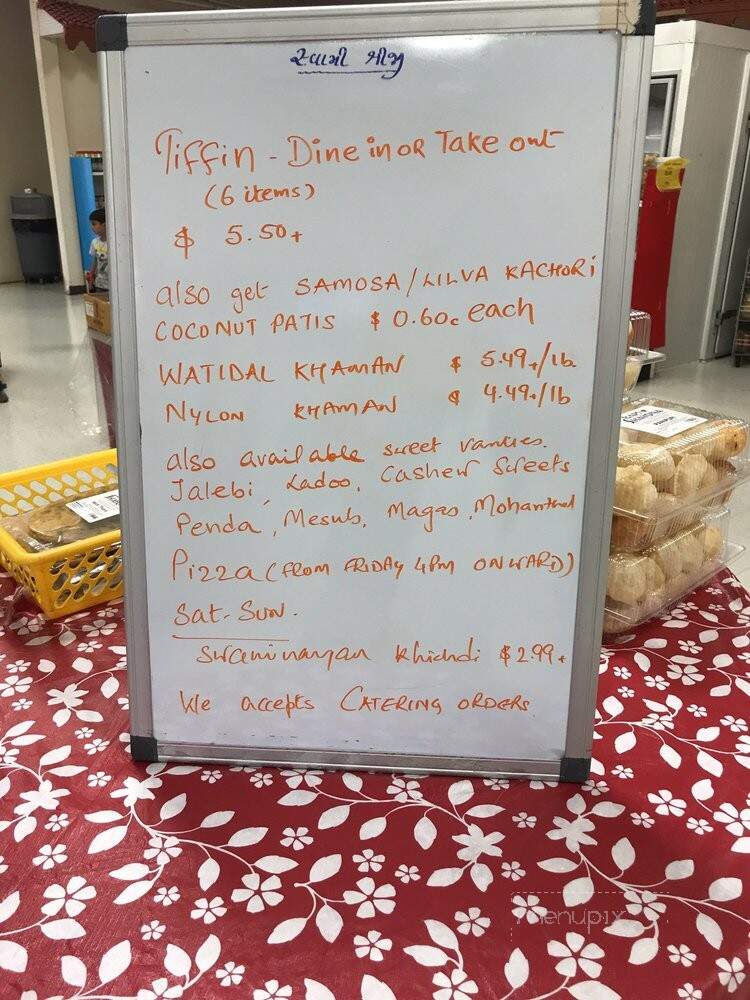 સ્વામી શ્રીજી
Tiffin - Dine in OR Take out
(6 items)
$ 5.50+
also get SAMOSA/LILVA KACHORI
COCONUT PATIS $ 0.60c each
WATIDAL KHAMAN $ 5.49+/lb
NYLON KHAMAN $ 4.49+/lb
also available sweet varities.
Jalebi, Ladoo, Cashew Sweets
Penda, Mesub, Magas, Mohanthal
Pizza (FROM FRIDAY 4PM ONWARD)
Sat-Sun.
Swaminarayan Khichdi $ 2.99+
We accepts CATERING ORDERS
menupix